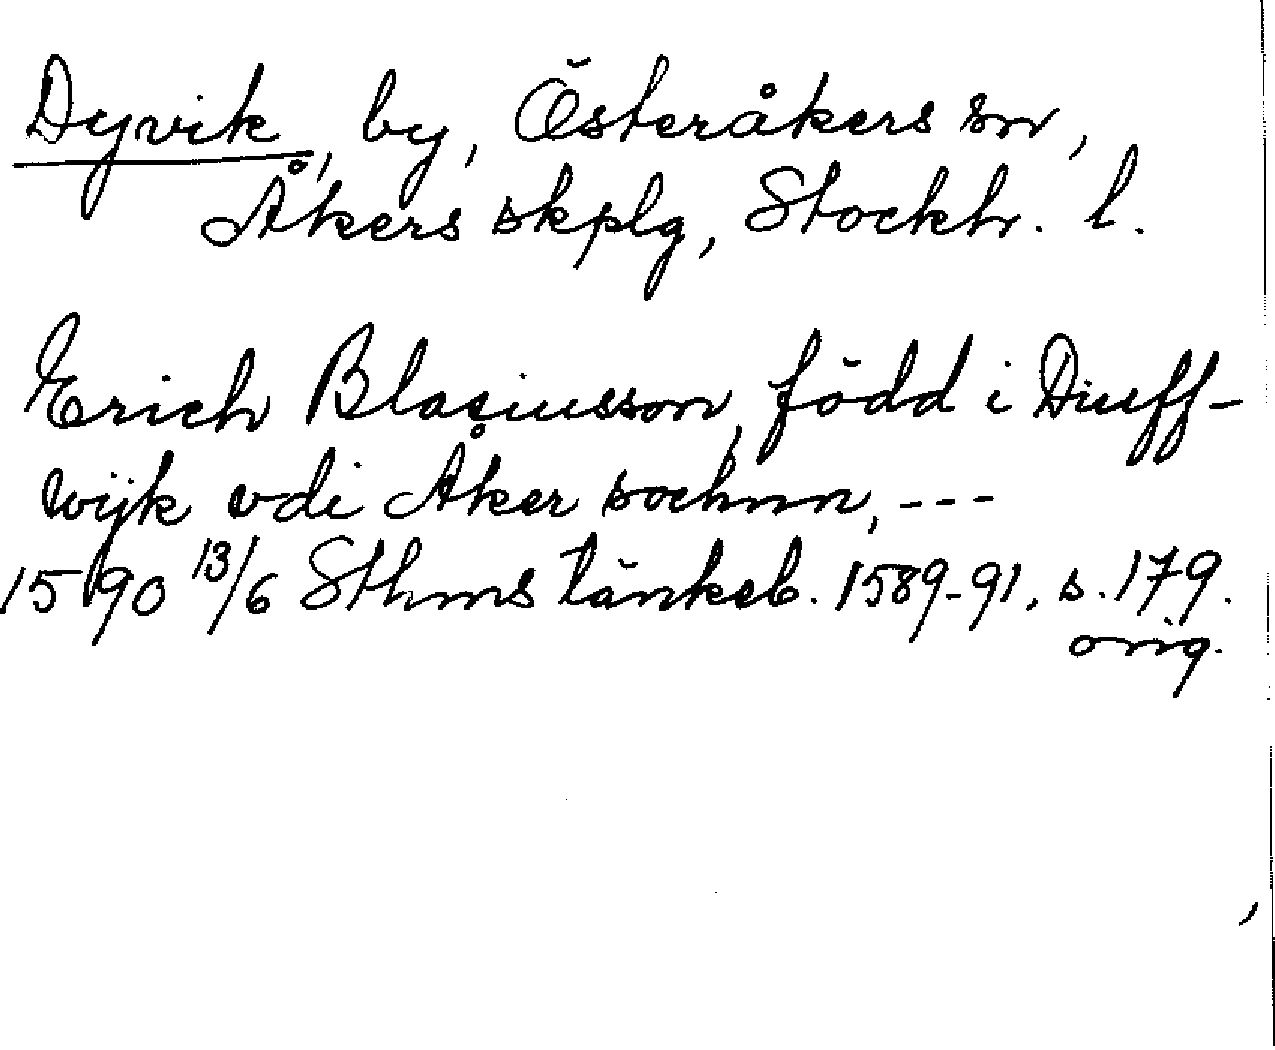 Dyvik, by, Österåkers sn,
Åkers skplg, Stockh. l.
Erich Blasiusson, född i Diuff-
wijk vdi Åker sochnn, ---
1590 13/6 Sthms tänkeb. 1589-91, s. 179.
orig.